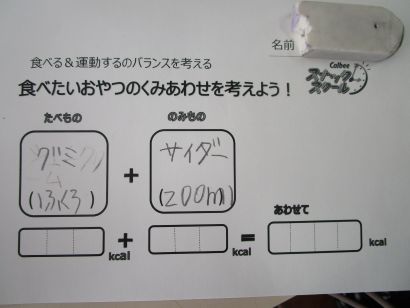 名前
食べる＆運動するのバランスを考える
Calbee
スナックスクール
食べたいおやつのくみあわせを考えよう！
たべもの
のみもの
グミ
(1ふくろ)
+
サイダー
(200ml)
あわせて
kcal
+
kcal
=
kcal